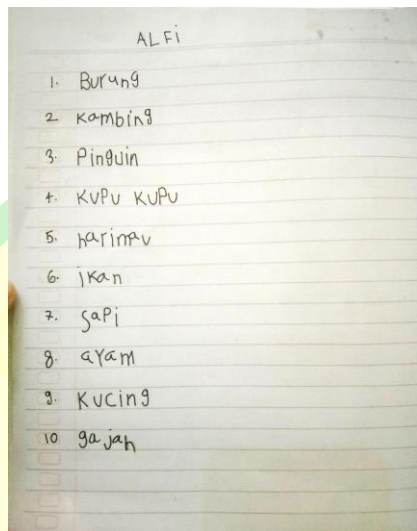 ALFi
1. Burung
2 Kambing
3. Pinguin
4. KUPU KUPU
5. harimau
6. ikan
7. sapi
8. ayam
9. Kucing
10 gajah